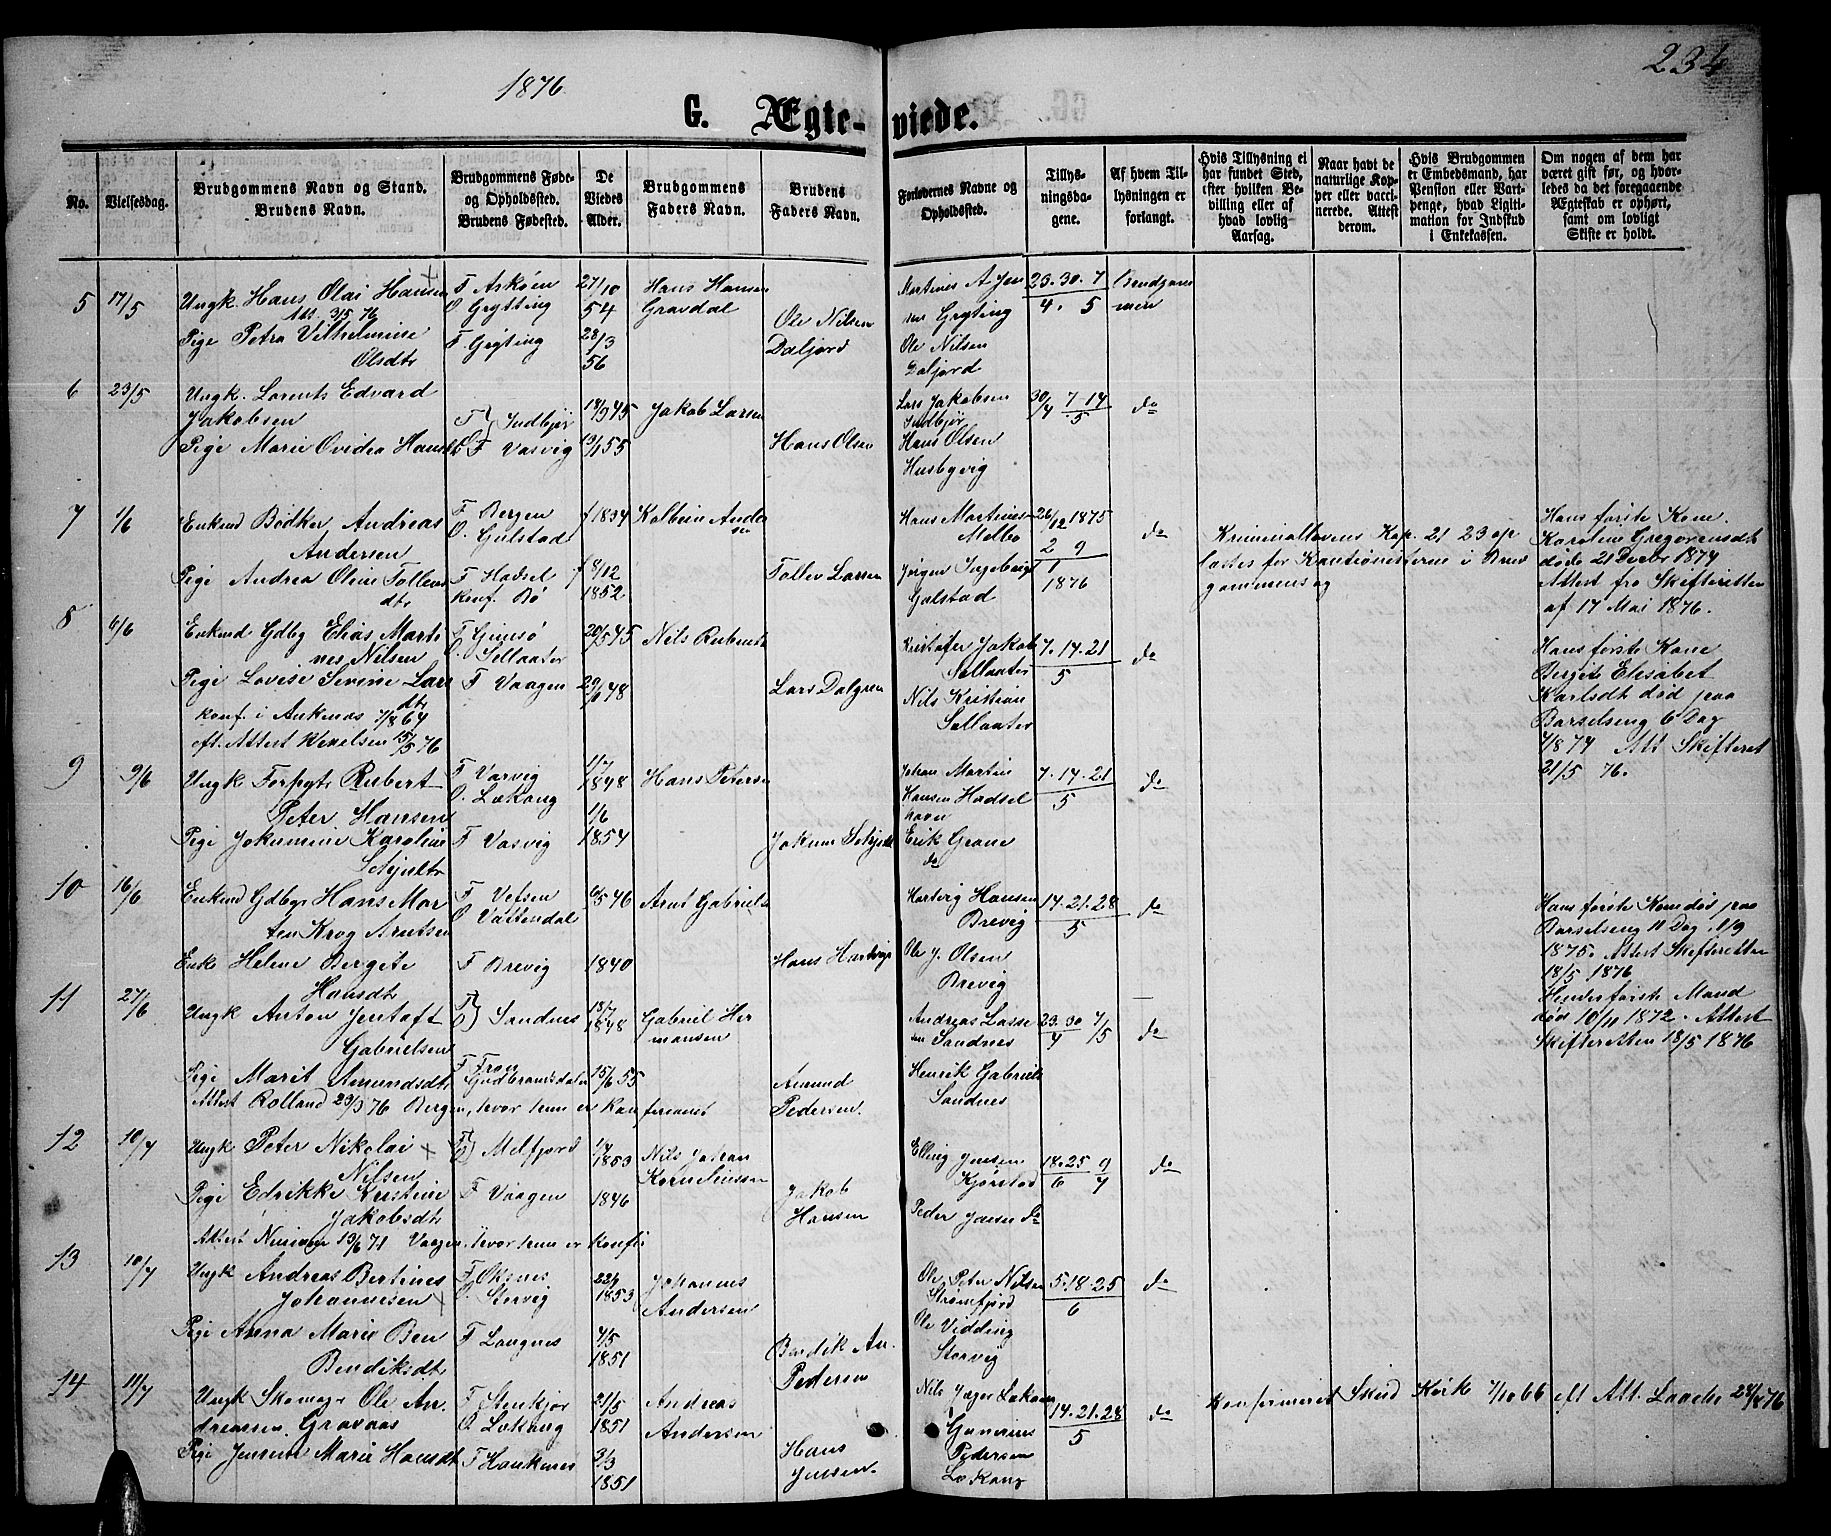 1876.
234
G. Ægteviede.
No.
Vielsesdag.
Brudgommens Navn og Stand.
Brudens Navn.
Brudgommens Føde-
og Opholdssted.
Brudens Fødested.
De
Viedes
Alder.
Brudgommens
Faders Navn.
Brudens
Faders Navn.
Forlovernes Navne og
Opholdssted.
Tillys-
ningsda-
gene.
Af hvem Til-
lysningen er
forlangt.
Hvis Tillysning ei
har fundet Sted,
efter hvilken Be-
villing eller af
hvad lovlig
Aarsag.
Naar havt de
naturlige Kop-
per eller vacci-
nerede. Attest
derom.
Hvis Brudgommen
er Embedsmand, har
Pension eller Vart-
penge, hvad Ligiti-
mation for Indskud
i Enkekassen.
Om nogen af dem har
været gift før, og hvor-
ledes da det foregaaende
Ægteskab er ophørt,
samt om lovligt
Skifte er holdt.
5 17/5 Ungk. Hans Olai Hansen F Askøen 27/10 54 Hans Hansen Martines A Jen 23.30.7
Att. 3/5 76 O Grytting Gravdal sen Grytting 4. 5
Pige Petra Vilhelmine F Grytting 28/3 56 Ole Nilsen Ole Nilsen
Olsdtr Daljord Daljord
6 23/5 Ungk. Lorents Edvard
Jakobsen F O Indbjør 18/9 45 Jakob Larsen Lars Jakobsen Indbjør 30/4 7 14/5 do
Pige Marie Ovidea Hansd F Vasvig 13/1 55 Hans Olsen Hans Olsen
Husbyvig
7 1/6 Enkemd Bødker Andreas F Bergen f 1834 Kolbein Ander Hans Martinus 26/12 1875 do
Andersen O. Gulstad sen Melbo 2 9/1 1876
Pige Andrea Oline Tollevs F Hadsel f 8/12 Tollev Larsen Jørgen Ingebrigt
dtr konf. Bø 1852 Gulstad
Kriminallovens Kap. 21 23 op
læstes for Kautionisterne i Brud
gommens sag
Hans første Kone.
Karoline Gregoriusdt
døde 21 Decbr 1874
Attest fra Skifteretten
af 17 Mai 1876.
8 6/6 Enkemd Gdbg Elias Marti F Gimsø 20/5 45 Nils Rubents Kristofer Jakob 7.14.21/5 do
nes Nilsen O. Sellaater Sellaater
Pige Lovise Sevine Lars F Vaagen 29/1 48 Lars Dalgren Nils Kristian
dtr Sellaater
konf. i Ankenæs 7/8 64
eft. Attest Wexelsen 15/5 76
Hans første Kone
Bergite Elisabet
Karlsdt død paa
Barselseng 6 Dag
1/8 74 Att Skifteret
21/5 76.
9 9/6 Ungk Forpgt Rubert F Vasvig 1/7 1848 Hans Petersen Johan Martin 7.14.21/5 do
Peter Hansen O. Lækang Hansen Hadsel
havn
Pige Jokumine Karoline F Vasvig 1/6 1854 Jokum Schjelt Erik Grane
Schjeltr do
10 16/6 Enkemd Gdbgr Hans Mor F Vefsen 6/5 46 Arnt Gabriels Hartvig Hansen 14.21.28/5 do
ten Krog Arntsen O Vattendal Brevig
Enke Helene Bergete F Brevig 1840 Hans Hartvigs Ole J. Olsen
Hansdt Brevig
Hans første Kone død paa
Barselseng 11 Dag. 1/9
1875. Attest Skifteretten
18/5 1876
Hendes første Mand
død 10/11 1872. Attest
Skifteretten 18/5 1876
11 27/6 Ungk Anton Jentoft F O Sandnes 13/7 1848 Gabriel Her Andreas Lasse 23.30/4 7/5 do
Gabrielsen mansen sen Sandnes
Pige Marit Amundsdtr F Fron Gudbrandsdalen 15/6 55 Amund Henrik Gabriels
Attest Rolland 23/3 76 Bergen, hvor hun er konfirmeret Pedersen. Sandnes
12 10/7 Ungk Peter Nikolai F O Melfjord 1/4 1853 Nils Johan Elling Jensen 18.25/6 9/7 do
Nilsen Kornelinssen Kjørstad
Pige Edrikke Kristine F Vaagen 1846 Jakob Peder Jensen do
Jakobsdt Hansen
Attest 13/6 71 Vaagen, hvor hun er konfir
13 10/7 Ungk Andreas Bertines F Øksnes 22/9 1853 Johannes Ole Peter Nilsen 5.18.25/6 do
Johannesen O. Storvig Andersen Strømfjord
Pige Anna Marie Ben F Langnes 4/5 1851 Bendik An. Ole Vidding
Bendiksdt Pedersen Storvig
14 11/7 Ungk Skomgr Ole An F Stenkjær 21/5 1851 Andreas Nils Jæger Lækang 14.21.28/5 do Konfirmeret Skud Kirke 7/10 66 eft Att.
dreassen Gravaas O Lækang Andersen Gunerius
Pige Jensine Marie Hansdt F Haukenes 3/3 1851 Hans Pedersen
Jensen. Lækang